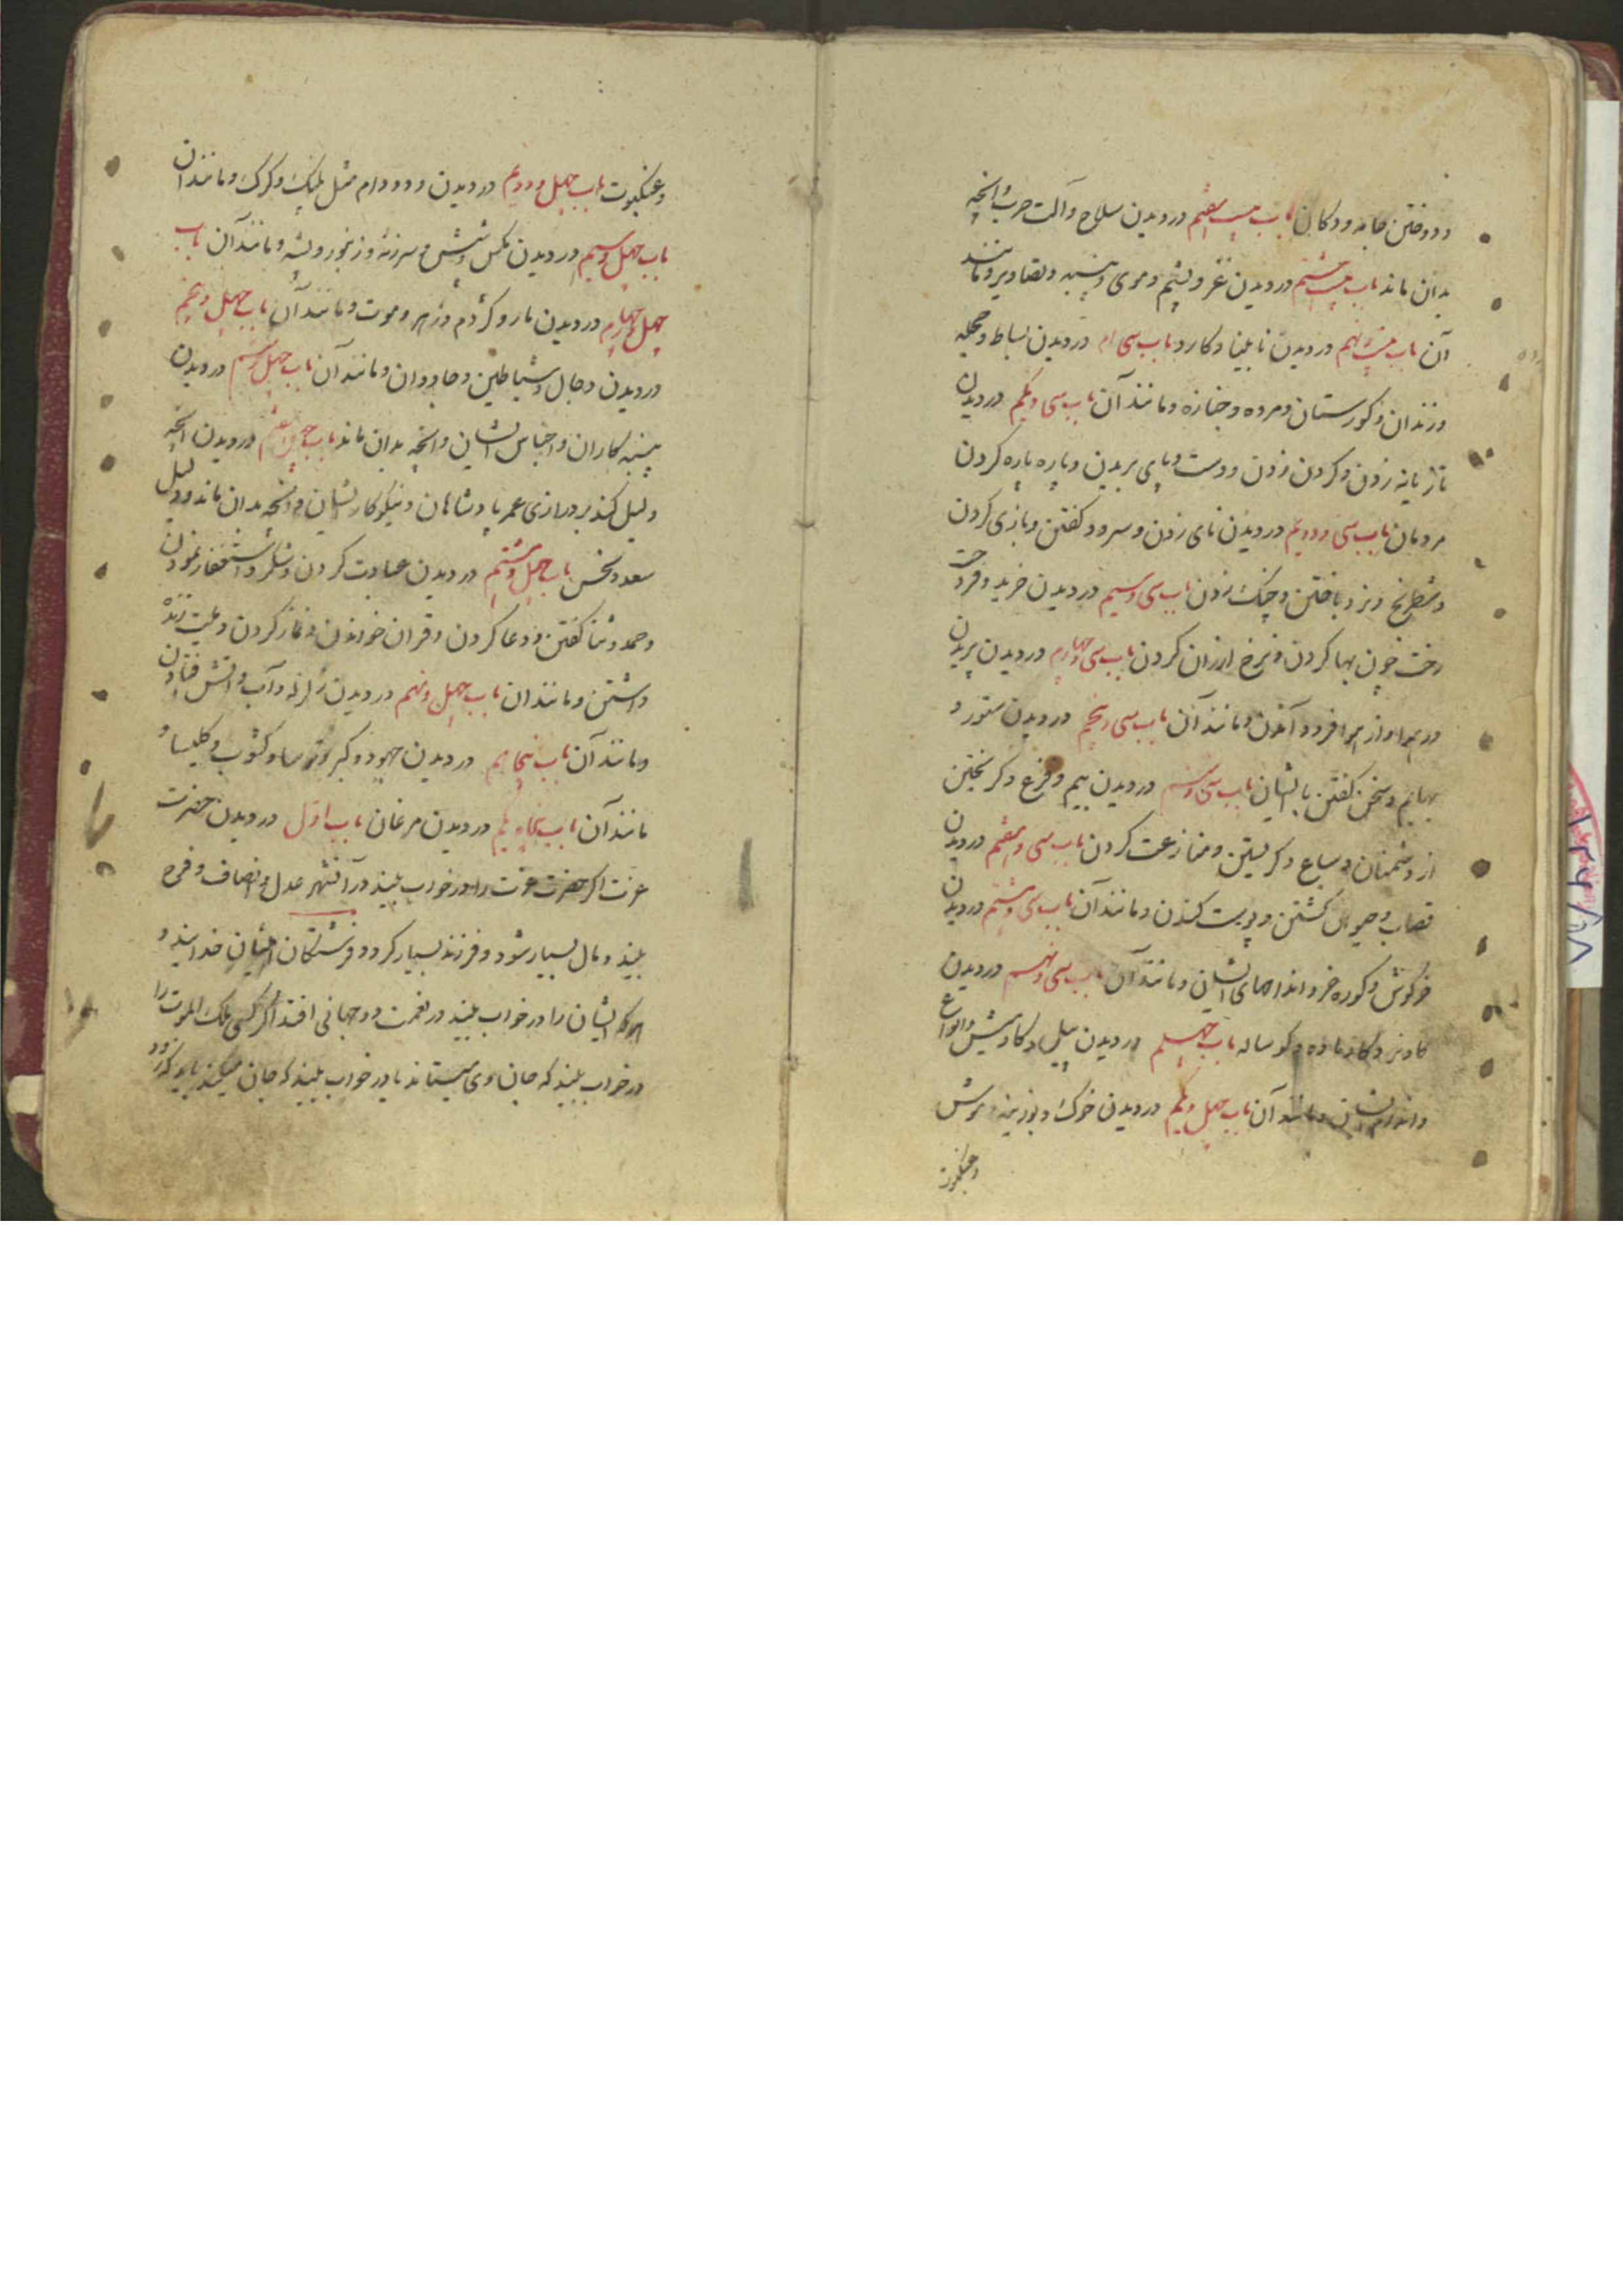 و دوختن جامه و دکان باب بیست هفتم در دیدن سلاح و آلت حرب و آنچه
بدان ماند باب بیست هشتم در دیدن و پشم و موی و پنبه و تصاویر و مانند
آن باب بیست نهم در دیدن نابینا و کارد باب سی ام در دیدن بساط و
و زندان و کورستان و مرده و جنازه و مانند آن باب سی و یکم در دیدن
تازیانه زدن و کردن زدن و دست و پای بریدن و پاره پاره کردن
مردمان باب سی و دویم در دیدن نای زدن و سرود کفتن و بازی کردن
و شطرنج و نرد باختن و چنک زدن باب سی و سیم در دیدن خرید و فروخت
رخت چون بها کردن و نرخ ارزان کردن باب سی و چهارم در دیدن پریدن
در هوا و از هوا فرود آمدن و مانند آن باب سی و پنجم در دیدن ستور و
بهایم و سخن کفتن با ایشان باب سی و ششم در دیدن بیم و فزع و کریختن
از دشمنان و سباع و کریستن و منازعت کردن باب سی و هفتم در دیدن
قصاب و حیوان کشتن و پوست کندن و مانند آن باب سی و هشتم در دیدن
خرکوش و کوره خر و اندامهای ایشان و مانند آن باب سی و نهم در دیدن
کاو نر و کاو ماده و کوساله باب چهلم در دیدن پیل و کاومیش و انواع
و اندام ایشان و مانند آن باب چهل و یکم در دیدن خوک و بوزینه و موش
و عنکبوت
و عنکبوت باب چهل و دویم در دیدن دد و دام مثل پلنک و کرک و مانند آن
باب چهل و سیم در دیدن مکس و شپش و زنبور و پشه و مانند آن باب
چهل و چهارم در دیدن مار و کژدم و زهر و موت و مانند آن باب چهل و پنجم
در دیدن دجال و شیاطین و جادوان و مانند آن باب چهل و ششم در دیدن
پیشه کاران و اجناس ایشان و آنچه بدان ماند باب چهل و هفتم در دیدن آنچه
دلیل کند بر درازی عمر پادشاهان و نیکو کار ایشان و آنچه بدان ماند و دلیل
سعد و نحس باب چهل و هشتم در دیدن عبادت کردن و شکر و استغفار نمودن
و حمد و ثنا کفتن و دعا کردن و قران خواندن و نماز کردن و
داشتن و مانند ان باب چهل و نهم در دیدن زلزله و آب و آتش فتادن
و مانند آن باب پنجاهم در دیدن جهود و کبر و ترسا و کنشت و کلیسا و
مانند آن باب پنجاه و یکم در دیدن مرغان باب اول در دیدن حضرت
عزت اکر حضرت عزت را در خواب بیند در آن شهر عدل و انصاف و فرح
بیند و مال بسیار شود و فرزند بسیار کردد و فرشتکان
هر که ایشان را در خواب بیند در نعمت دو جهانی افتد اکر کسی ملک الموت را
در خواب بیند که جان وی میستاند یا در خواب بیند که جان میکند باید که زود